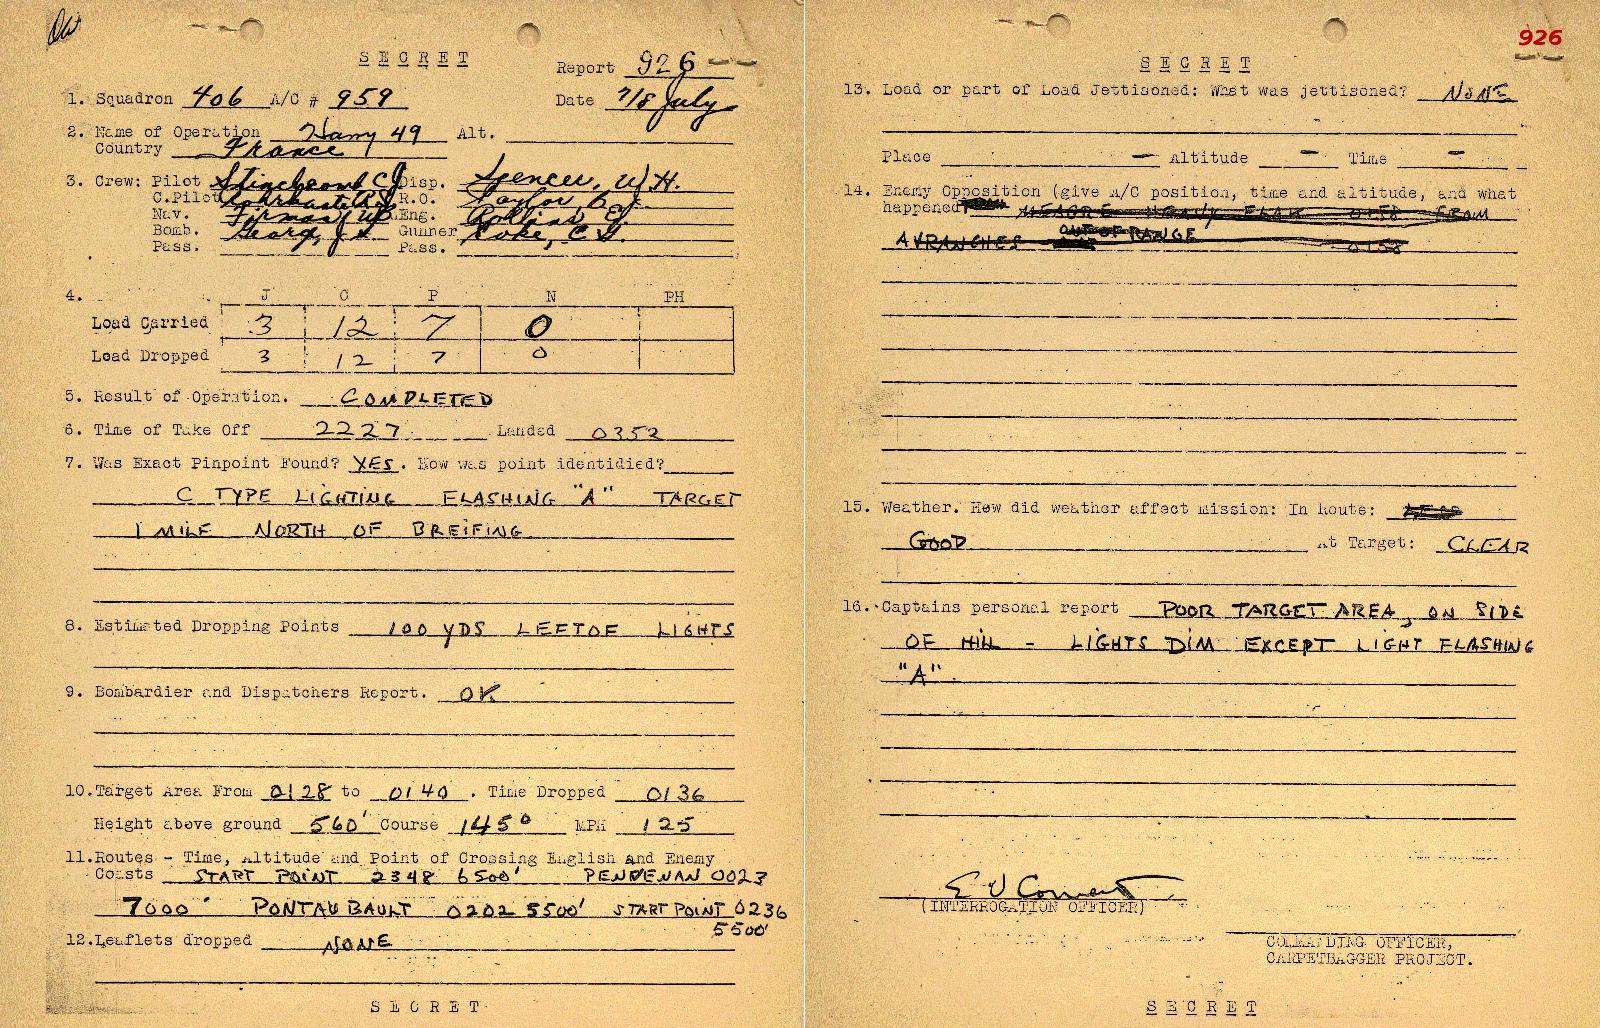 SECRET
Report 926
1. Squadron 406 A/C # 959 Date 7/8 July
2. Name of Operation Harry 49 Alt.
Country France
3. Crew: Pilot Stinchcomb CJ Disp. Spencer, W.H.
C.Pilot R.O. Taylor,
Nav. Eng. Rollins,
Bomb. Georg, Gunner Coke, C
Pass. Pass.
4. J C P N PH
Load Carried 3 12 7 0
Load Dropped 3 12 7 0
5. Result of Operation. COMPLETED
6. Time of Take Off 2227 Landed 0352
7. Was Exact Pinpoint Found? YES. How was point identidied?
C TYPE LIGHTING FLASHING "A" TARGET
1 MILE NORTH OF BREIFING
8. Estimated Dropping Points 100 YDS LEFT OF LIGHTS
9. Bombardier and Dispatchers Report. OK
10. Target Area From 0128 to 0140. Time Dropped 0136
Height above ground 560' Course 145° MPH 125
11. Routes - Time, Altitude and Point of Crossing English and Enemy
Coasts START POINT 2348 6500' PENVENAN 0023
7000' PONTAUBAULT 0202 5500' START POINT 0236
5500'
12. Leaflets dropped NONE
SECRET
926
SECRET
13. Load or part of Load Jettisoned: What was jettisoned? NONE
Place — Altitude — Time -
14. Enemy Opposition (give A/C position, time and altitude, and what
happened MEAGRE HEAVY FLAK 0158 FROM
AVRANCHES OUT OF RANGE 0158
15. Weather. How did weather affect mission: In Route:
GOOD At Target: CLEAR
16. Captains personal report POOR TARGET AREA, ON SIDE
OF HILL - LIGHTS DIM EXCEPT LIGHT FLASHING
"A".
(INTERROGATION OFFICER)
COMMANDING OFFICER,
CARPETBAGGER PROJECT.
SECRET